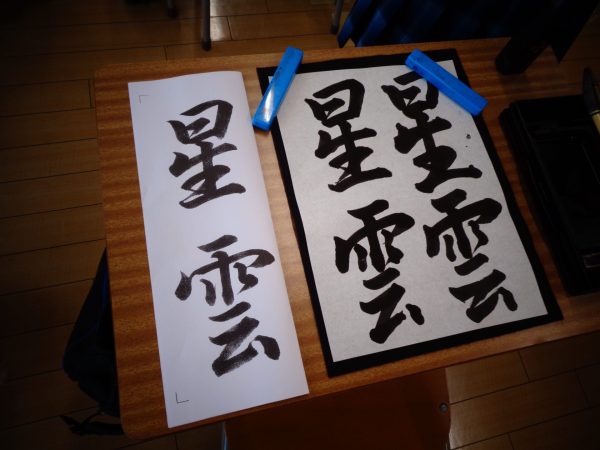 星雲
星雲
星雲